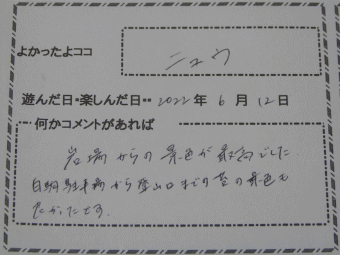 よかったよココ
ニュウ
遊んだ日・楽しんだ日・・ 2022年 6月 12日
何かコメントがあれば
岩場からの景色が最高でした
白駒駐車場から登山口までの苔の景色も
よかったです。